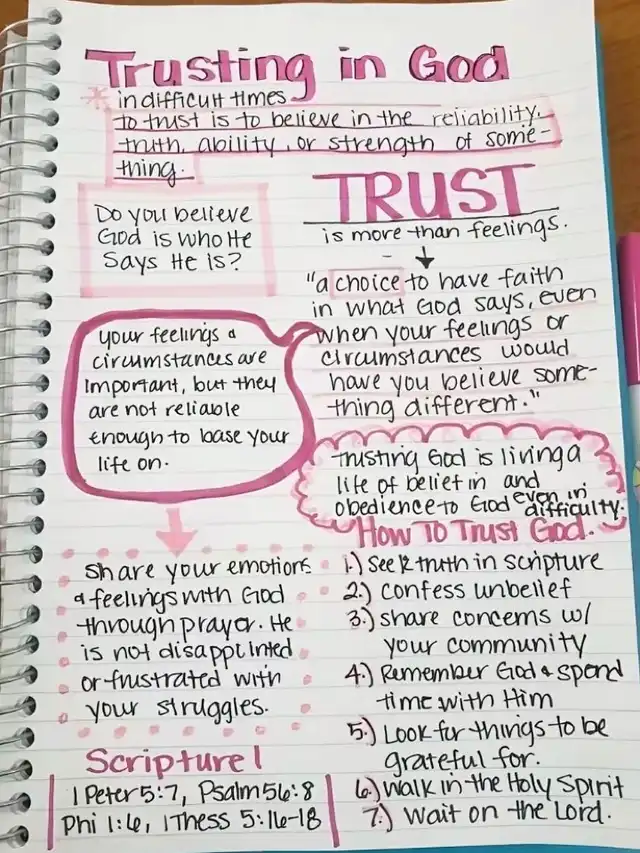 Trusting in God
* in difficult times
to trust is to believe in the reliability,
truth, ability, or strength of some-
thing.
Do you believe
God is who He
Says He is?
TRUST
is more than feelings.
"a choice to have faith
in what God says, even
when your feelings or
circumstances would
have you believe some-
thing different."
your feelings &
circumstances are
important, but they
are not reliable
enough to base your
life on.
trusting God is living a
life of belief in and
obedience to God even in
difficulty.
share your emotions
& feelings with God
through prayer. He
is not disappointed
or frustrated with
your struggles.
How To Trust God.
1.) seek truth in scripture
2.) confess unbelief
3.) share concerns w/
your community
4.) Remember God & spend
time with Him
5.) Look for things to be
grateful for.
6.) Walk in the Holy Spirit
7.) Wait on the Lord.
Scripture!
1 Peter 5:7, Psalm 56:8
Phi 1:6, 1 Thess 5:16-18